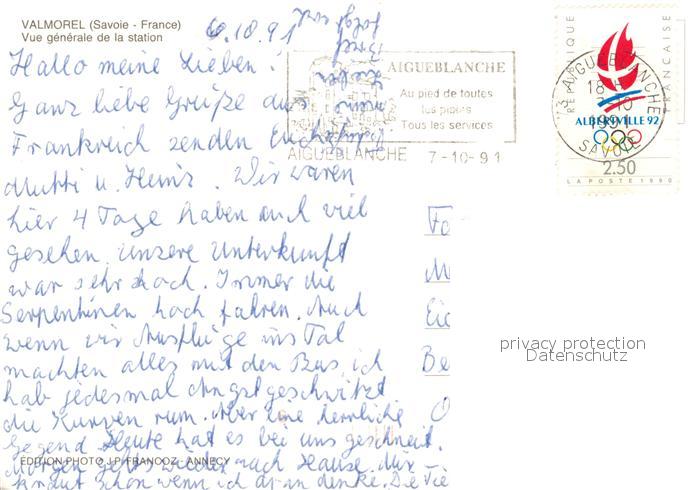 VALMOREL (Savoie - France)
Vue générale de la station
6.10.91
Hallo meine Lieben!
Ganz liebe Grüße aus
Frankreich senden Euch
Mutti u. Heinz. Wir waren
hier 4 Tage haben auch viel
gesehen. Unsere Unterkunft
war sehr hoch. Immer die
Serpentinen hoch fahren. Auch
wenn wir Ausflüge ins Tal
machten alles mit den Bus, ich
hab jedesmal Angst geschwitzt
die Kurven rum. Aber eine herrliche
Gegend. Heute hat es bei uns geschneit.
Morgen gehts wieder nach Hause. Mir
graut schon wenn ich dran denke. Die
EDITION PHOTO J.P. FRANCOZ - ANNECY
AIGUEBLANCHE
Au pied de toutes
les pistes
Tous les services
AIGUEBLANCHE 7-10-91
REPUBLIQUE FRANCAISE
ALBERTVILLE 92
2.50
LA POSTE 1990
73 AIGUEBLANCHE
18 H
7-10
1991
SAVOIE
privacy protection
Datenschutz